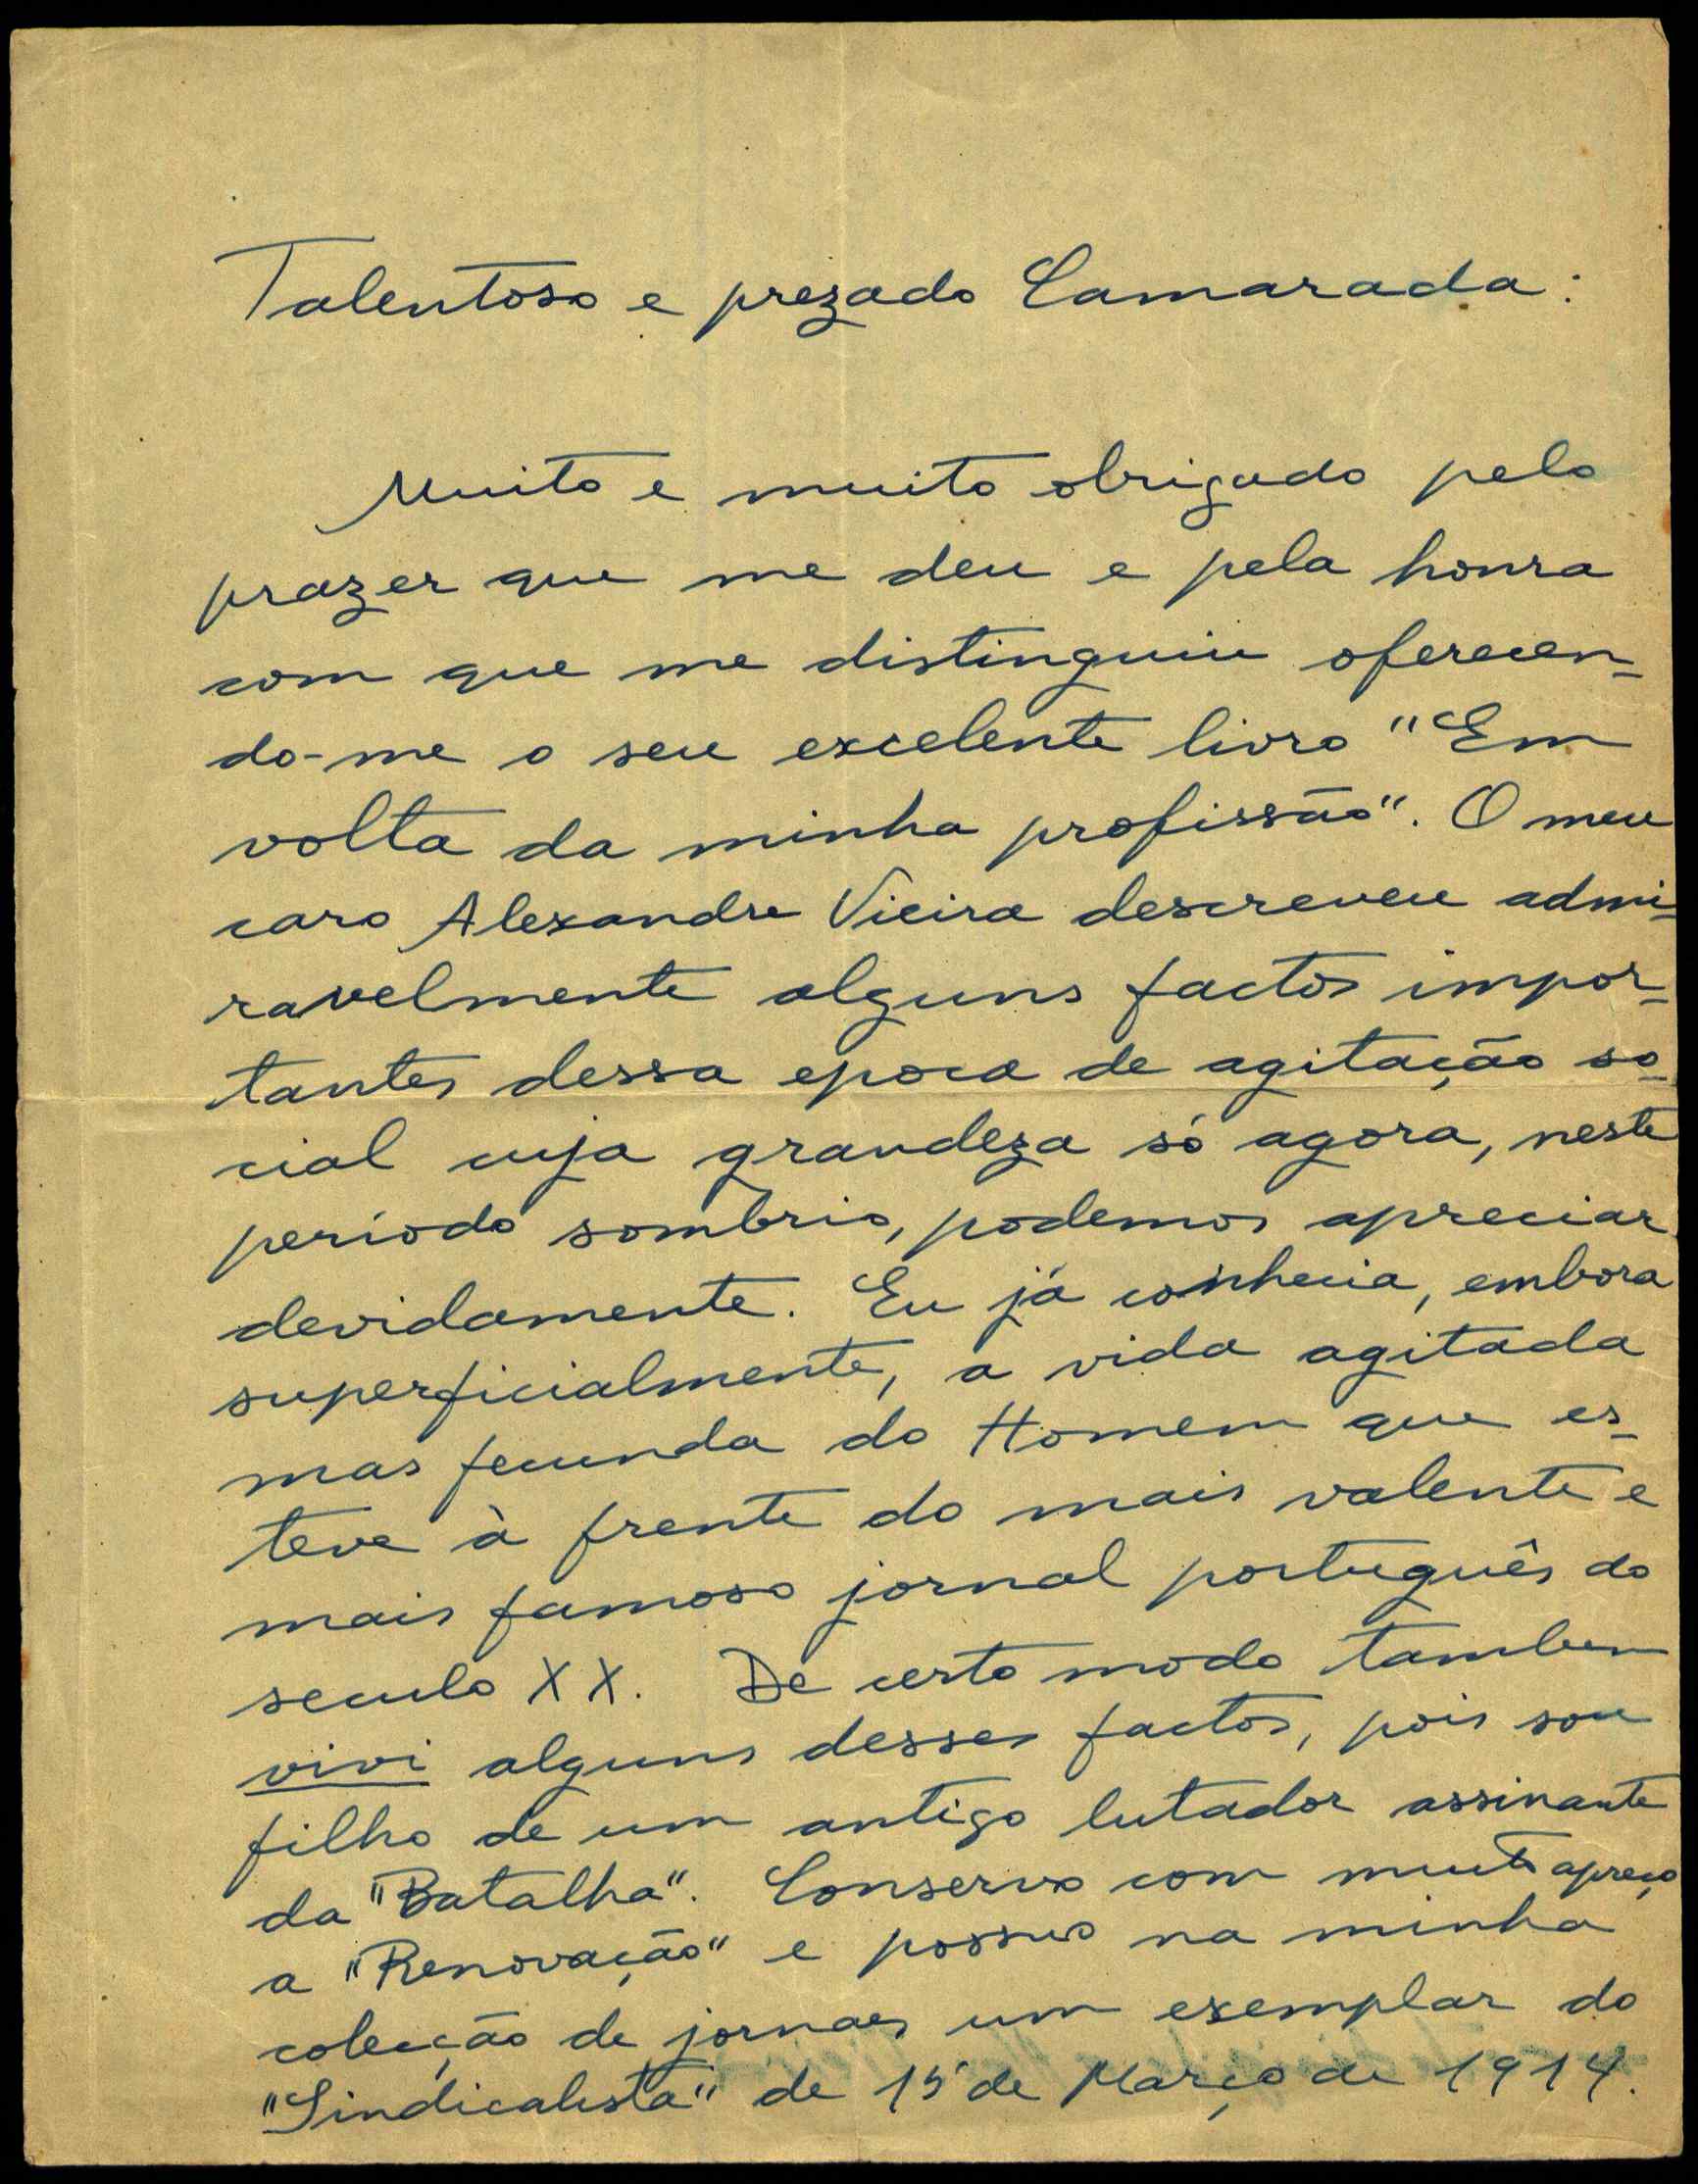 Talentoso e prezado Camarada:
Muito e muito obrigado pelo
prazer que me deu e pela honra
com que me distinguiu oferecen-
do-me o seu excelente livro "Em
volta da minha profissão". O meu
caro Alexandre Vieira descreveu admi-
ravelmente alguns factos impor-
tantes dessa epoca de agitação so-
cial cuja grandeza só agora, neste
período sombrio, podemos apreciar
devidamente. Eu já conhecia, embora
superficialmente, a vida agitada
mas fecunda do Homem que es-
teve à frente do mais valente e
mais famoso jornal português do
seculo XX. De certo modo tambem
vivi alguns desses factos, pois sou
filho de um antigo lutador assinante
da "Batalha". Conservo com muito apreço
a "Renovação" e possuo na minha
colecção de jornaes um exemplar do
"Sindicalista" de 15 de Março de 1914.